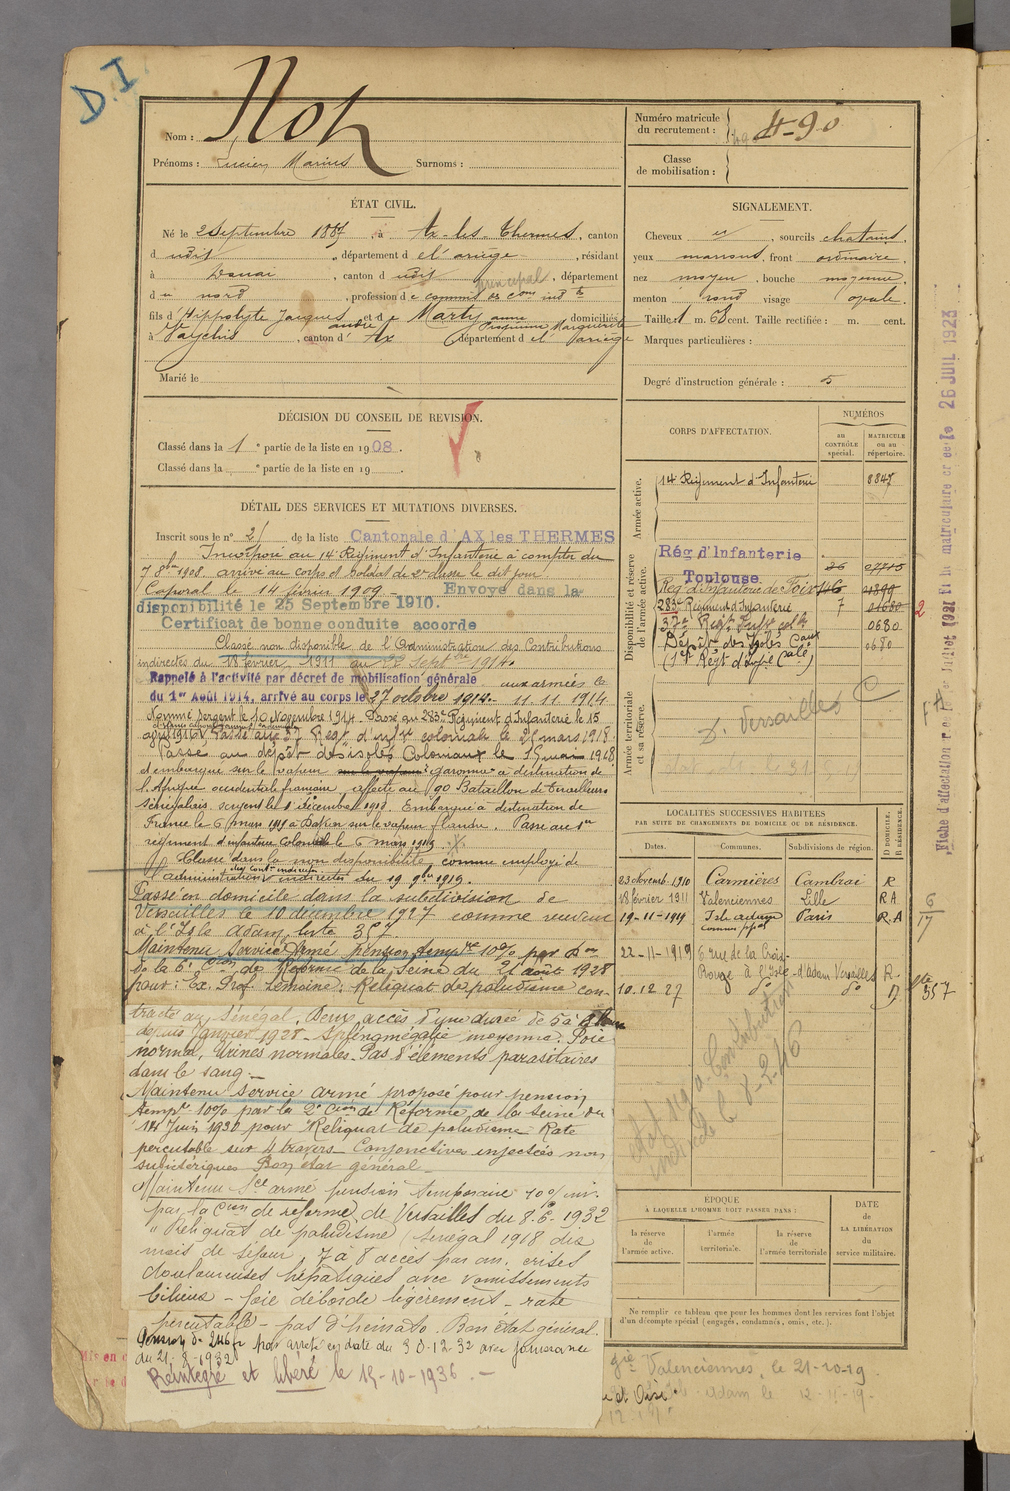 D.I.
Nom : Not
Prénoms : Lucien Marius Surnoms :
Numéro matricule du recrutement : 490
Classe de mobilisation :
ÉTAT CIVIL.
Né le 2 Septembre 1887, à Ax-les-Thermes, canton
dudit, département de l'ariège, résidant
à Douai, canton dudit, département
du nord, profession de commis principal des Cons indtes
fils d'Hippolyte Jacques andré et de Marty anne Marguerite domiciliés
à Vaychis, canton d'Ax département de l'ariège
Marié le
SIGNALEMENT.
Cheveux et sourcils chatains,
yeux marrons, front ordinaire,
nez moyen, bouche moyenne,
menton rond visage ovale.
Taille : 1 m. 68 cent. Taille rectifiée : m. cent.
Marques particulières :
Degré d'instruction générale : 5
DÉCISION DU CONSEIL DE REVISION.
Classé dans la 1e partie de la liste en 1908.
Classé dans la e partie de la liste en 19
CORPS D'AFFECTATION.
NUMÉROS
au CONTRÔLE spécial.
MATRICULE ou au répertoire.
Armée active.
14e Régiment d'Infanterie 8847
Disponibilité et réserve de l'armée active.
Rég d'Infanterie Toulouse
Rég d'Infanterie de Foix
283e Régiment d'Infanterie 7
37e Régt Infie colle 0680
Dépôt des Isolés Caux 0680
(1er Régt d'Infie Cale)
Armée territoriale et sa réserve.
D. Versailles C
DÉTAIL DES SERVICES ET MUTATIONS DIVERSES.
Inscrit sous le n° 21 de la liste Cantonale d'AX les THERMES
Incorporé au 14e Régiment d'Infanterie à compter du
7 8bre 1908. arrivé au corps et Soldat de 2e classe le dit jour.
Caporal le 14 février 1909. Envoyé dans la
disponibilité le 25 Septembre 1910.
Certificat de bonne conduite accordé
Classé non disponible de l'Administration des Contributions
indirectes du 18 février 1911 au 22 Sept 1914.
Rappelé à l'activité par décret de mobilisation générale
du 1er Août 1914, arrivé au corps le 27 octobre 1914. aux armées le 11 11 1914
Nommé sergent le 10 Novembre 1914. Passé au 283e Régiment d'Infanterie le 15
août 1916. Passé au 37 Régt d'infie coloniale le 25 mars 1918.
Passé au dépôt des isolés Coloniaux le 15 mai 1918,
embarqué sur le vapeur "Garonna" à destination de
l'Afrique occidentale française, affecté au 90 Bataillon de Tirailleurs
Sénégalais, sergent le 1 décembre 1918. Embarqué à destination de
France le 6 mars 1919 à Dakar sur le vapeur flandre. Passé au 1er
régiment d'infanterie coloniale le 6 mars 1919.
Classé dans la non disponibilité comme employé de
l'administration des cont. indirectes du 19 9bre 1919.
Passé en domicile dans la subdivision de
Versailles le 10 décembre 1927 comme receveur
à l'Isle Adam, liste 357
Maintenu Service Armé pension tempre 10% par Don
de la 6e Cion de Réforme de la Seine du 21 août 1928
pour : Ex. Prof. Lemoine. Reliquat de paludisme con-
tracté au Sénégal. Deux accès d'une durée de 5 à 8 h
depuis Janvier 1928 - Splénomégalie moyenne. Foie
normal, Urines normales - Pas d'éléments parasitaires
dans le sang.-
Maintenu service armé proposé pour pension
tempre 10% par la 2e Cion de Réforme de la Seine du
14 Juin 1930 pour Reliquat de paludisme - Rate
percutable sur 4 travers - Conjonctives injectées non
subictériques - Bon état général -
Maintenu Sce armé pension temporaire 10% inv.
par la Cion de réforme de Versailles du 8-6-1932
"Reliquat de paludisme (Sénégal 1918 dix
mois de séjour, 7 à 8 accès par an, crises
douloureuses hépatiques avec vomissements
bilieux - foie déborde légèrement - rate
percutable - pas d'hémato. Bon état général.
Pension de 246 fr par arrêté en date du 30-12-32 avec jouissance
du 21-8-1932
Réintégré et libéré le 15-10-1936.-
LOCALITÉS SUCCESSIVES HABITÉES
PAR SUITE DE CHANGEMENTS DE DOMICILE OU DE RÉSIDENCE.
Dates. Communes. Subdivisions de région. D DOMICILE. R RÉSIDENCE
23 Novemb. 1910 Carnières Cambrai R
18 février 1911 Valenciennes Lille RA
19-11-1919 Isle Paris R.A
22-11-1919 6 rue de la Croix-Rouge à l'Isle-d'Adam Versailles R
10.12.27 do do D lte 357
6
17
8-2-46
ÉPOQUE
À LAQUELLE L'HOMME DOIT PASSER DANS :
la réserve de l'armée active.
l'armée territoriale.
la réserve de l'armée territoriale
DATE de LA LIBÉRATION du service militaire.
Ne remplir ce tableau que pour les hommes dont les services font l'objet
d'un décompte spécial (engagés, condamnés, omis, etc.).
Valenciennes, le 21-10-19
et Oise
Adam le 12-11-19
26 JUIL 1923